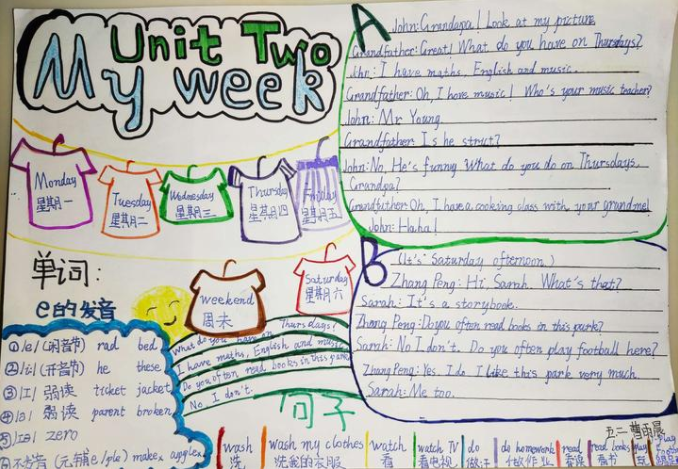 Unit Two
My week
Monday
星期一
Tuesday
星期二
Wednesday
星期三
Thursday
星期四
Friday
星期五
Saturday
星期六
weekend
周末
单词:
e的发音
①/e/ (闭音节) rad bed
②/i:/ (开音节) he these
③/I/ 弱读 ticket jacket
④/ə/ 弱读 parent broken
⑤/ɪə/ zero
⑥不发音
What do you have on Thursdays?
I have maths, English and music
Do you often read books in this park
No, I don't.
句子
wash
洗
wash my clothes
洗我的衣服
watch
看
watch TV
看电视
do
do homework
read
看书
A
John: Grandpa! Look at my picture
Grandfather: Great! What do you have on Thursdays?
John: I have maths, English and music.
Grandfather: Oh, I have music! Who's your music teacher?
John: Mr Young
Grandfather: Is he struct?
John: No, He's funny. What do you do on Thursdays.
Grandpa?
Grandfather: Oh, I have a cooking class with your grandma!
John: Haha!
B
(It's Saturday ofternoon)
Zhang Peng: Hi, Sarah. What's that?
Sarah: It's a storybook.
Zhang Peng: Do you often read books in this park?
Sarah: No I don't. Do you often play football here?
Zhang Peng: Yes. I do I like this park very much
Sarah: Me too.
五二